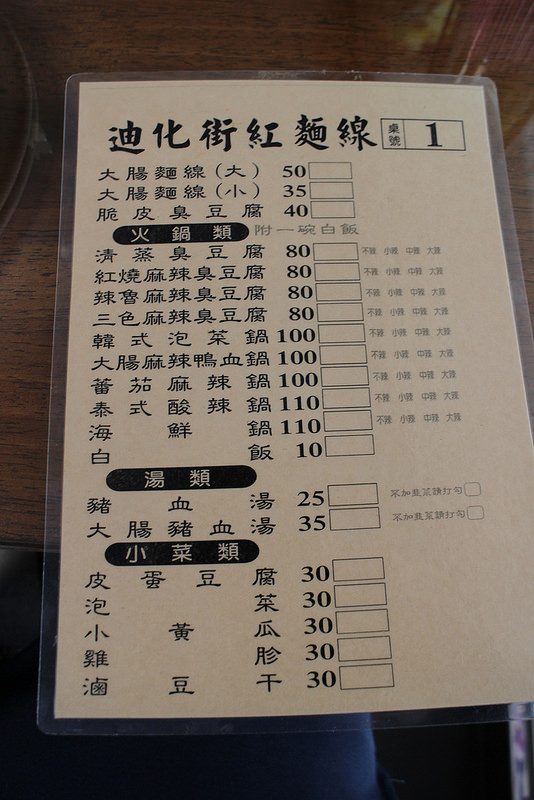 迪化街紅麵線 桌號 1
大腸麵線(大) 50
大腸麵線(小) 35
脆皮臭豆腐 40
火鍋類 附一碗白飯
清蒸臭豆腐 80 不辣 小辣 中辣 大辣
紅燒麻辣臭豆腐 80 不辣 小辣 中辣 大辣
辣魯麻辣臭豆腐 80 不辣 小辣 中辣 大辣
三色麻辣臭豆腐 80 不辣 小辣 中辣 大辣
韓式泡菜鍋 100 不辣 小辣 中辣 大辣
大腸麻辣鴨血鍋 100 不辣 小辣 中辣 大辣
蕃茄麻辣鍋 100 不辣 小辣 中辣 大辣
泰式酸辣鍋 110 不辣 小辣 中辣 大辣
海鮮鍋 110 不辣 小辣 中辣 大辣
白飯 10
湯類
豬血湯 25 不加韭菜請打勾
大腸豬血湯 35 不加韭菜請打勾
小菜類
皮蛋豆腐 30
泡菜 30
小黃瓜 30
雞胗 30
滷豆干 30